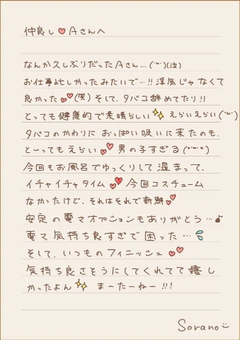 仲良し♥Aさんへ
なんか久しぶりだったAさん…(´˘`)(泣)
お仕事忙しかったみたいで…!!浮気じゃなくて
良かった♥♥(笑)そして、タバコ辞めてたり!!
とっても健康的で素晴らしい✨えらいえらい(´˘`)
タバコのかわりに おっぱい吸いに来たのも、
とーってもえらい♥男の子すぎる(´˘`*)
今回もお風呂でゆっくりして温まって、
イチャイチャタイム♥♥今回コスチューム
なかったけど、それはそれで新鮮♥
安定の電マオプションもありがとう…♪
電マ気持ち良すぎて困った…💦
そして、いつものフィニッシュ♥♥
気持ち良さそうにしてくれてて嬉し
かったよん✨ まーたーねー!!!
Sorano